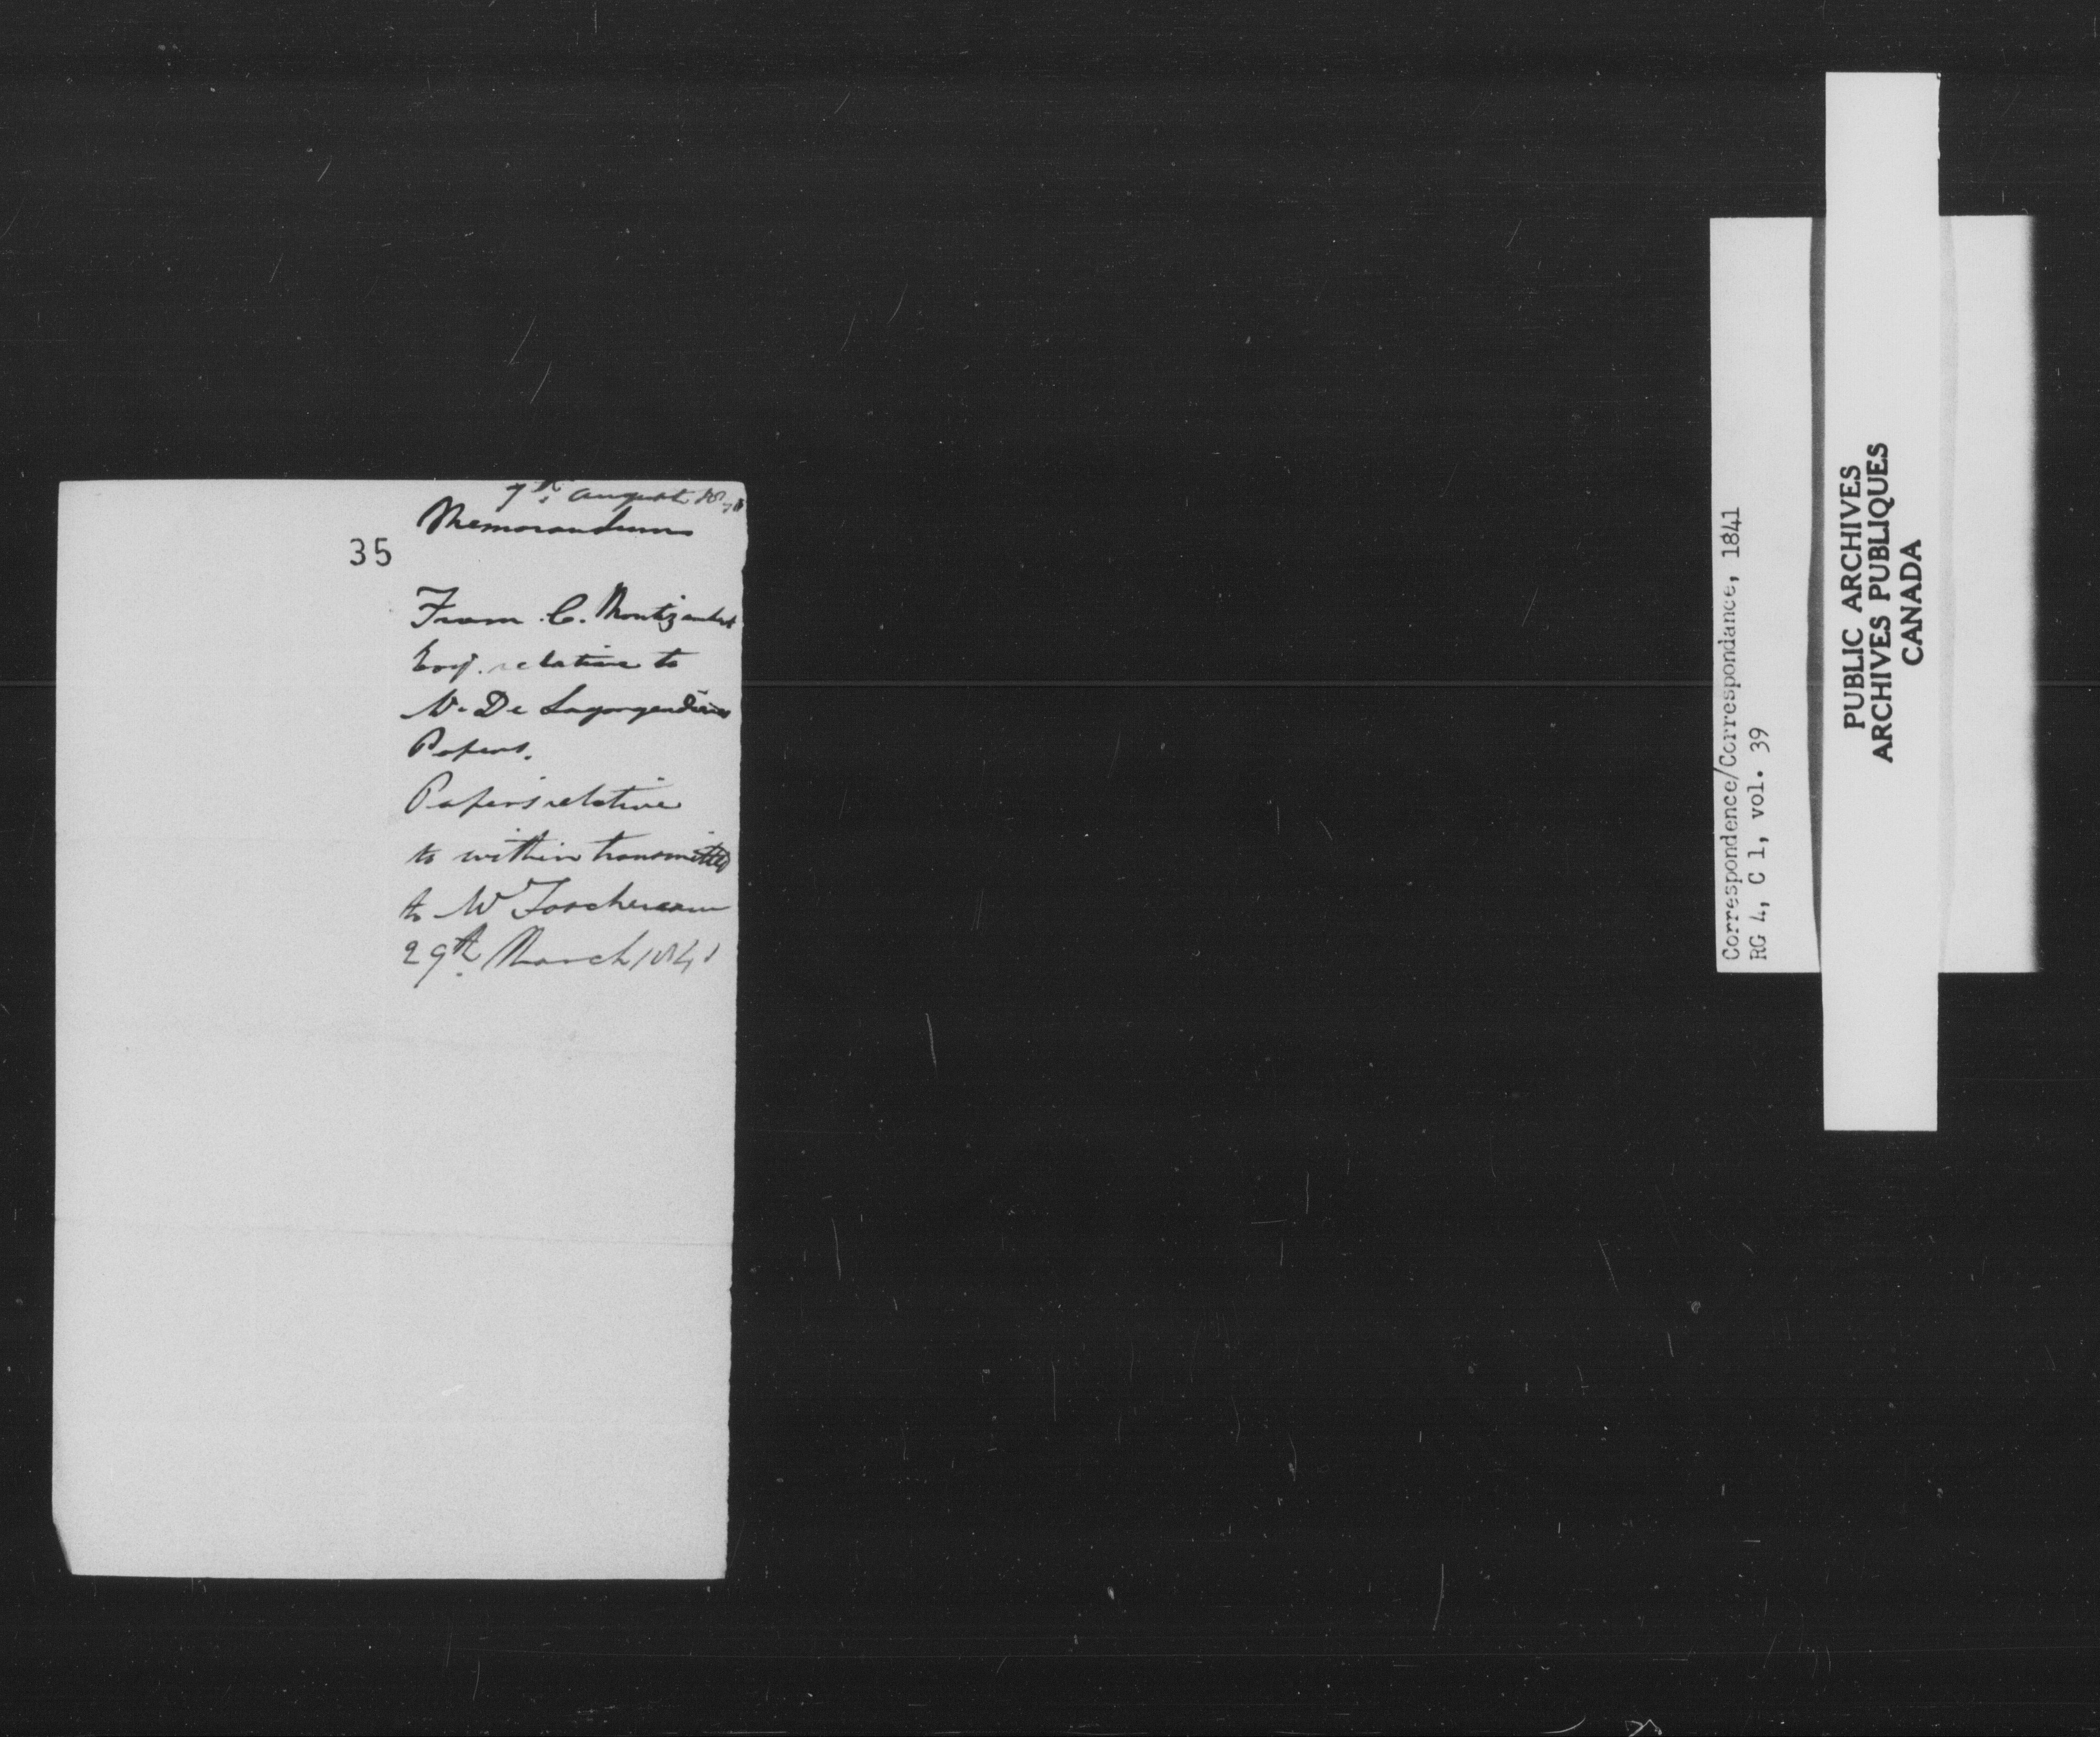 7th. August
Memorandum
35
From C. Montizambert
Esqr. relative to
Mr De Lagorgendière
Papers.
Papers relative
to within transmitted
to Mr Taschereau
29th. March 1841
Correspondence/Correspondance, 1841
RG 4, C 1, vol. 39
PUBLIC ARCHIVES
ARCHIVES PUBLIQUES
CANADA